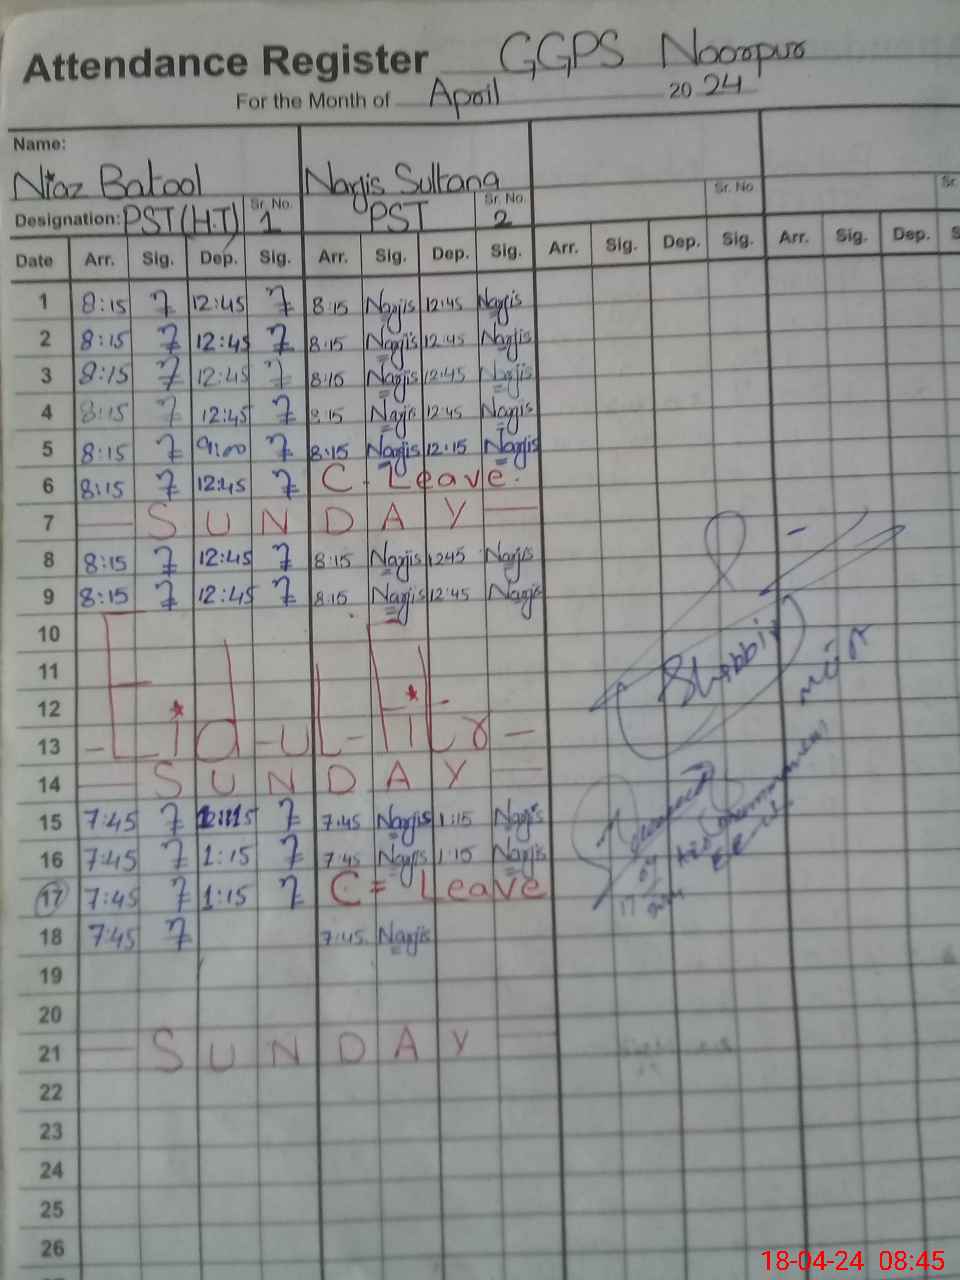 Attendance Register GGPS Noorpur
For the Month of April 20 24
Name:
Niaz Batool Nargis Sultana
Designation: PST (H.T) Sr. No. 1 PST Sr. No. 2 Sr. No Sr.
Date Arr. Sig. Dep. Sig. Arr. Sig. Dep. Sig. Arr. Sig. Dep. Sig. Arr. Sig. Dep. S
1 8:15 12:45 8:15 Nargis 12:45 Nargis
2 8:15 12:45 8:15 Nargis 12:45 Nargis
3 8:15 12:45 8:15 Nargis 12:45 Nargis
4 8:15 12:45 8:15 Nargis 12:45 Nargis
5 8:15 9:00 8:15 Nargis 12:15 Nargis
6 8:15 12:45 C. Leave.
7 SUNDAY
8 8:15 12:45 8:15 Nargis 1245 Nargis
9 8:15 12:45 8:15 Nargis 12:45 Nargis
10
11
12
13 - Eid-ul-Fitr -
14 SUNDAY
15 7:45 7:45 Nargis 1:15 Nargis
16 7:45 1:15 7:45 Nargis 1:15 Nargis
17 7:45 1:15 C = Leave
18 7:45 7:45 Nargis
19
20
21 SUNDAY
22
23
24
25
26
Shabbir
18-04-24 08:45